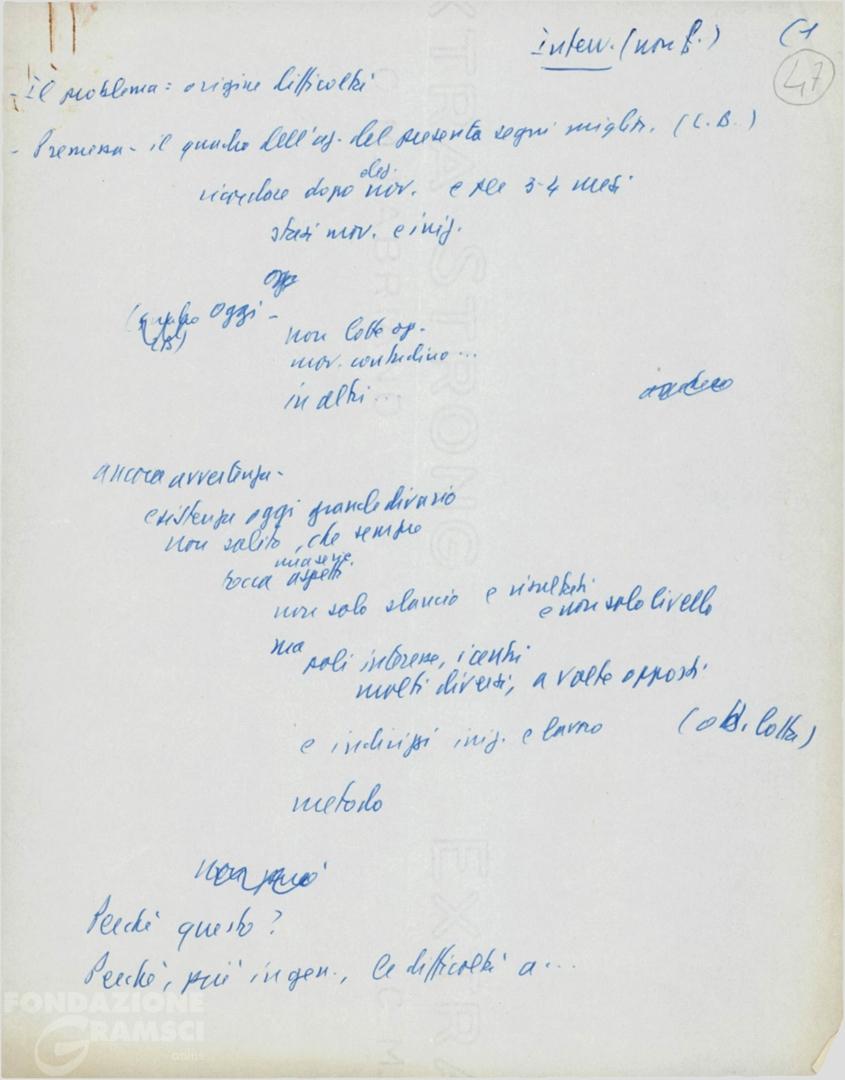 Interv. (non P.) (1
47
- Il problema = origine difficoltà
- Premessa - il quadro dell' del presenta segni miglior. (L.B.)
dopo nov. e 3-4 mesi
stasi mov. e iniz.
oggi -
non lotte op.
mov. contadino ...
in altri
ancora avvertenza -
esistenza oggi grande divario
non solito, che sempre
una serie
tocca aspetti
non solo slancio e risultati
e non solo livello
ma
poli interesse, i centri
molti diversi, a volte opposti
e indirizzi iniz. e lavoro (ob. lotta)
metodo
non può
Perchè questo?
Perchè, più in gen., le difficoltà a...
EXTRA STRONG
EXTRA
FONDAZIONE
GRAMSCI
onlus